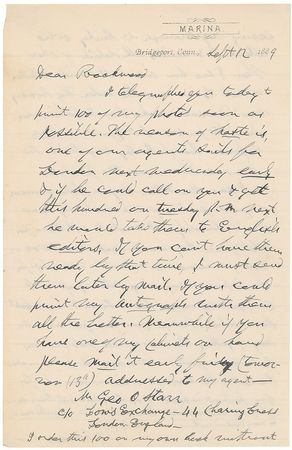 MARINA
Bridgeport, Conn., Sept 12 1889
Dear Rockwood
I telegraphed you today to
print 100 of my photos soon as
possible. The reason of haste is
one of our agents sails for
London next Wednesday early
& if he could call on you & get
this hundred on tuesday p.m. next
he would take them to English
editors. If you can't have them
ready by that time, I must send
them later by mail. If you could
print my autograph with them
all the better. Meanwhile if you
have one of my cabinets on hand
please mail it early friday (tomor-
row 13th) addressed to my agent—
Mr Geo O Starr
c/o Low's Exchange - 44 Charing Cross
London England
I order this 100 on my own hook without